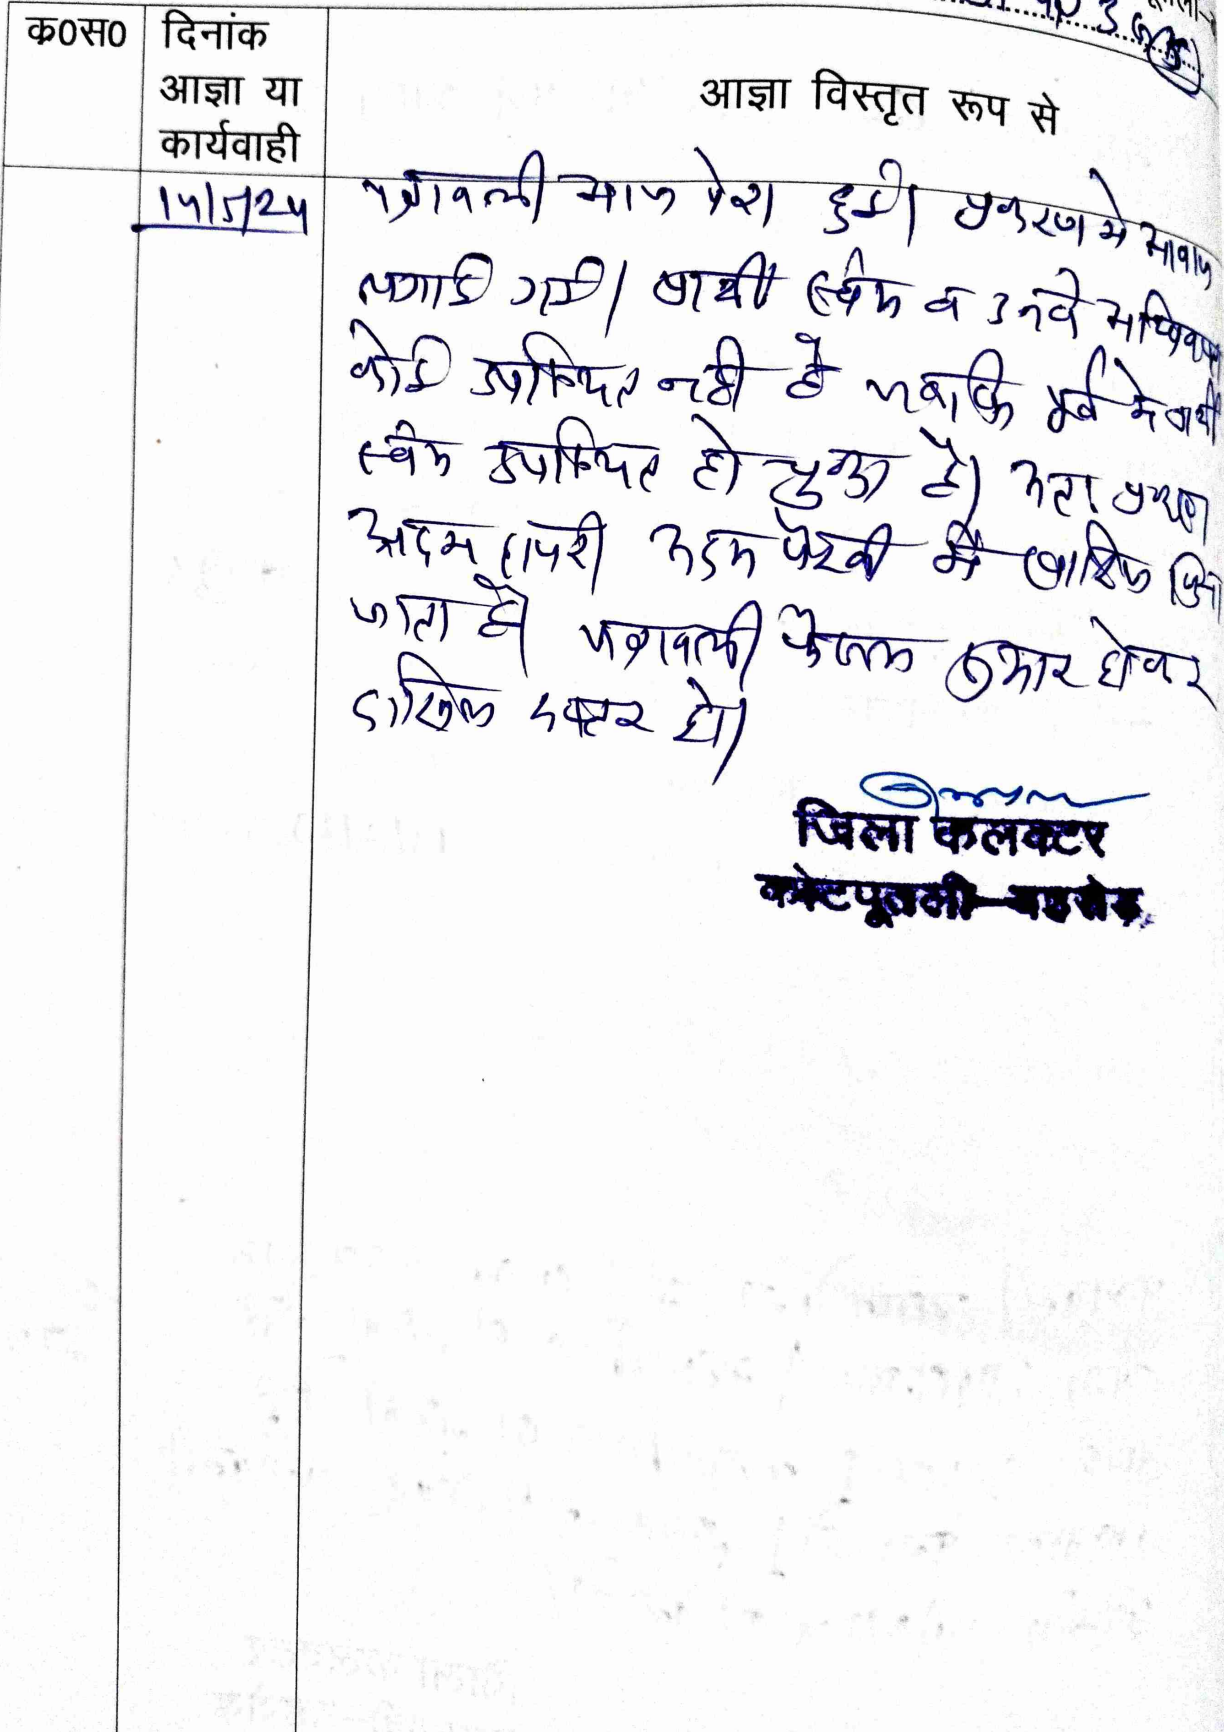 क0स0
दिनांक
आज्ञा या
कार्यवाही
आज्ञा विस्तृत रूप से
पत्रावली आज पेश हुई। प्रकरण मे आवाज
लगाई गई। वादी स्वंय व उनके अधिवक्ता
कोई उपस्थित नही है जबकि पूर्व मे वादी
स्वंय उपस्थित हो चुका है। अतः प्रकरण
अदम हाजरी अदम पैरवी मै खारिज किया
जाता है। पत्रावली फैसल शुमार होकर
दाखिल दफ्तर हो।
जिला कलक्टर
कोटपूतली-बहरोड़